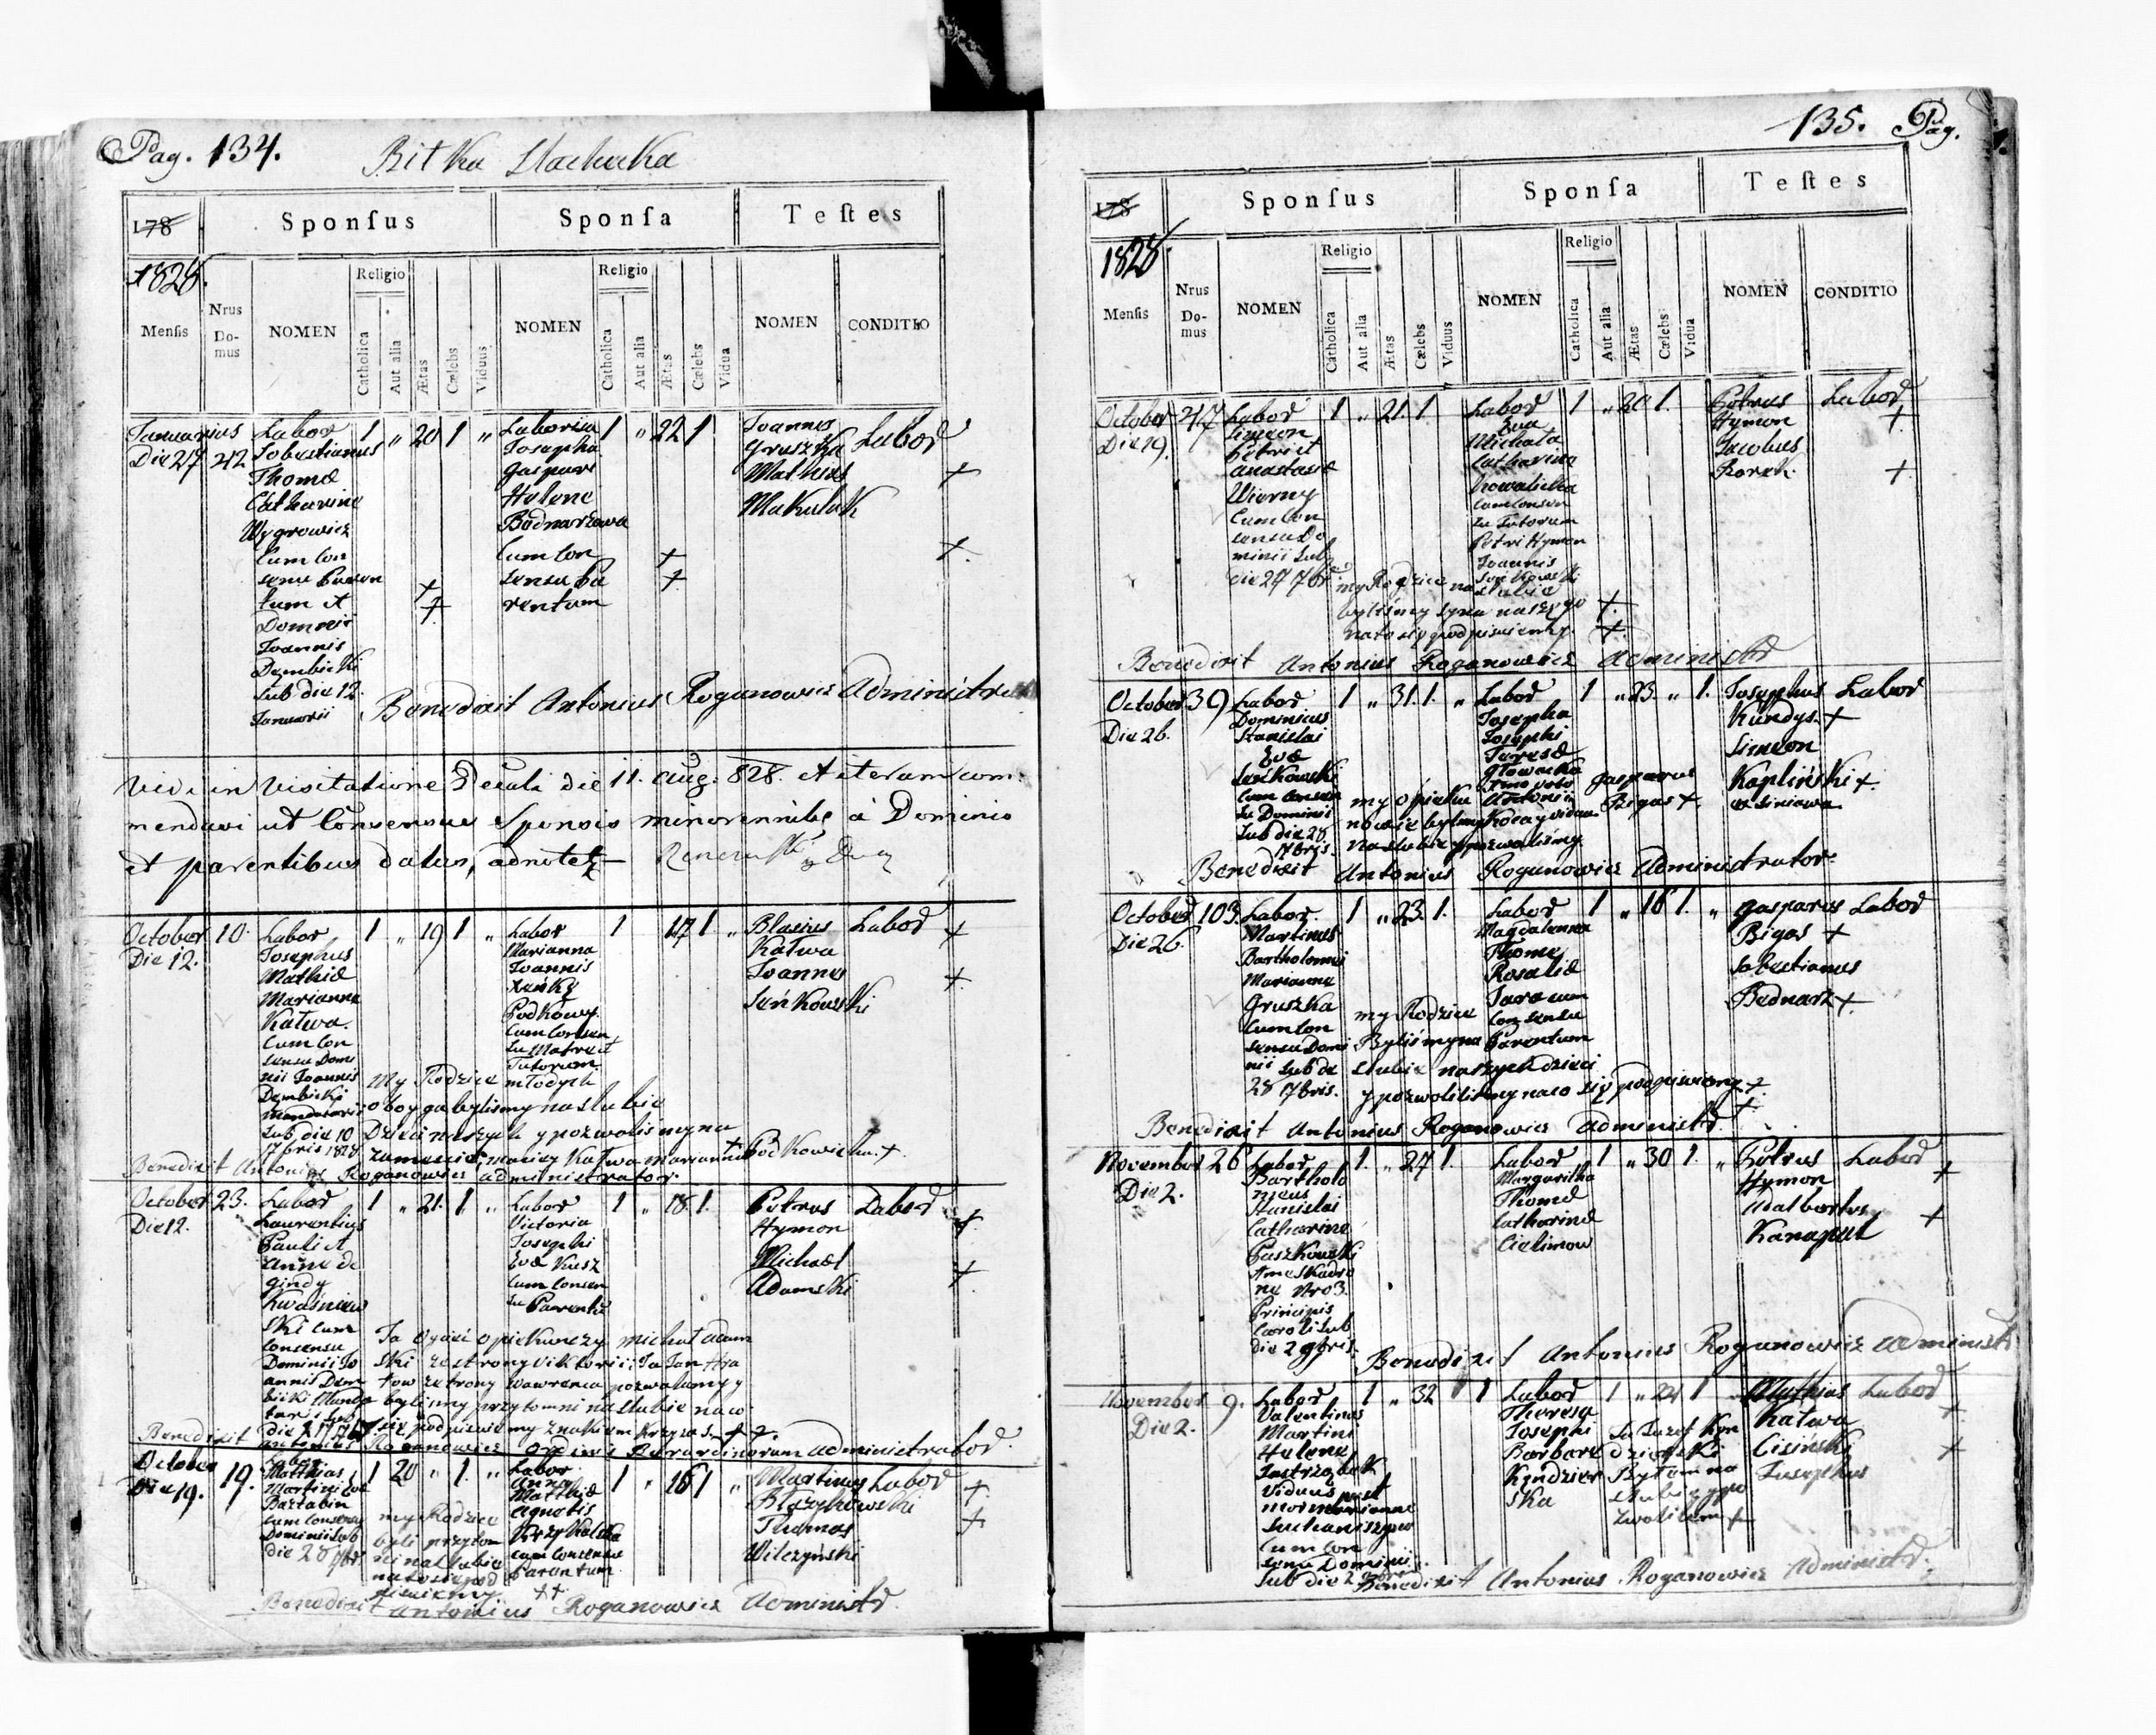 Pag. 134.
178
Sponſus
Sponſa
Teſtes
1828.
Menſis
Nrus Do-mus
NOMEN
Religio
Catholica
Aut alia
Ætas
Cælebs
Viduus
NOMEN
Religio
Catholica
Aut alia
Ætas
Cælebs
Vidua
NOMEN
CONDITIO
Januarius
Die 27
42
Labor
Sobestianus
Thomæ
Catharine
Wygrowicz
Cum Con
sensu Paren
tum et
Domnii
Joannis
Dembicki
sub die 12.
Januarii
1 " 20 1 "
Laboria
Josepha
Gaspari
Helene
Bednarzowa
Cum Con
sensu Pa
rentum
1 " 22 1
Joannes
Gruszka
Mathias
Makulak
Labor
+
+
Benedixit Antonius Roganowicz Administra
Vidi in Visitatione Decali die 11. Aug: 828. et iterum com
mendavi ut Consensus Sponsis minorennibs à Dominio
et parentibus datus, adnotetr
October
Die 12.
10.
Labor
Josephus
Mathiæ
Marianna
Katwa.
Cum Con
sensu Domi
nii Joannis
Dembicki
Mandatarii
Sub die 10
7bris 1828
1 " 19 1 "
Labor
Marianna
Joannis
Podkowy.
Cum Consen
su Matre et
Tutorum
1 17 1. "
Blasius
Katwa
Joannes
Seńkowski
Labor
+
+
My Rodzice młodych
oboyga bylismy na slubie
Dzieci naszych y pozwolismy na
Podkowicka. +
Benedixit Antonius
Roganowicz administrator
October
Die 12.
23.
Labor
Laurentius
Pauli et
Anne de
Gindy
Kwaśniew
ski cum
consensu
Dominii Jo
annis Dem
bicki Manda
1 " 21. 1. "
Labor
Victoria
Josephi
Evæ Kusz
cum Consen
su Parentū
1 " 18 1.
Petrus
Hymon
Michael
Adamski
Labor
+
+
Ja Oyciec opiekunczy michał adam
ski ze strony Viktorii; Ja Jan Hra
tow ze strony Wawrenca pozwalamy y
bylismy przytomni na slubie na co
się podpisuiemy znakiem krzyza s. + +.
Benedixit
Antonius Roganowicz Ordinis Bernardinorum administrator.
October
Die 19.
19.
Labor
Matthias
Martini et
Barbabin
cum Consensu
Dominii sub
die 28 7br
1 20 " 1. "
Labor
Anna
Matthiæ
Agnetis
Krzykalska
cum Consensu
Parentum
1 " 16 1 "
Martinus
Błazykowski
Thomas
Wilczyński
Labor
+
+
my Rodzice
byli przytom
ni na slubie
na to się pod
pisuiemy
++
Benedixit Antonius Roganowicz Administr.
135. Pag.
178
Sponſus
Sponſa
Teſtes
1828.
Menſis
Nrus Do-mus
NOMEN
Religio
Catholica
Aut alia
Ætas
Cælebs
Viduus
NOMEN
Religio
Catholica
Aut alia
Ætas
Cælebs
Vidua
NOMEN
CONDITIO
October
Die 19.
47
Labor
Simeon
Petri et
Anastasiæ
Wierny
Cum Con
sensu Do
minii sub
die 27 7br
1 " 21. 1.
Labor
Eva
Michala
Catharina
Kowalicka
Cum Consen
su Tutorum
Petri Hymon
Joannis
1 " 20 1.
Petrus
Hymon
Jacobus
Labor
+
+
my Rodzice na slubie
bylismy syna naszego +.
na to się podpisuiemy. +.
Benedixit Antonius Roganowicz Administr
October
Die 26.
39
Labor
Dominicus
Stanislai
Evæ
Seńkowski
Cum Consen
su Dominii
Sub die 28
7bris.
1 " 31. 1. "
Labor
Josepha
Josephi
Teresæ
Głowacka
Antonii
1 " 23. " 1.
Josephus
Kundys. +
Simeon
Kapliński +
Labor
my opieku
nowie bylismy
na slubie y pozwolismy.
Gasparus
Bigos +
Benedixit Antonius Roganowicz Administrator.
October
Die 26.
103.
Labor.
Martinus
Bartholomei
Marianne
Gruszka
Cum Con
sensu Domi
nii sub die
28 7bris.
1 " 23. 1.
Labor
Magdalenna
Thome
Rosaliæ
Consensu
Parentum
1 " 16 1. "
Gasparus
Bigos +
Sobestianus
Bednarz +
Labor
my Rodzice
Bylismy na
slubie naszych dzieci
y pozwolilismy na co się podpisuiemy +
+
Benedixit Antonius Roganowicz Administr.
November
Die 2.
26
Labor
Bartholo
meus
Stanislai
Catharine
Paszkowski
Principis
Caroli sub
die 2 9bris.
1. " 27 1.
Labor
Margaritha
Thomæ
Catharinæ
Cielimow
1 " 30 1. "
Petrus
Hymon
Malbertus
Kanapat
Labor
+
+
Benedixit Antonius Roganowicz Administr
November
Die 2.
9.
Labor
Valentinus
Martini
Helene
Jastrząbek
Viduus post
mortem Mariannæ
Cum Con
sensu Dominii
Sub die 2
1 " 32 1
Labor
Theresa
Josephi
Barbare
Kędzier
ska
1 " 24 1
Mathias
Katwa
Cisiński
Josephus
Labor
+
+
Ja Jozef Kęn
dzierski
Byłem na
slubie y po
zwoliłem +
Benedixit Antonius Roganowicz Administr.